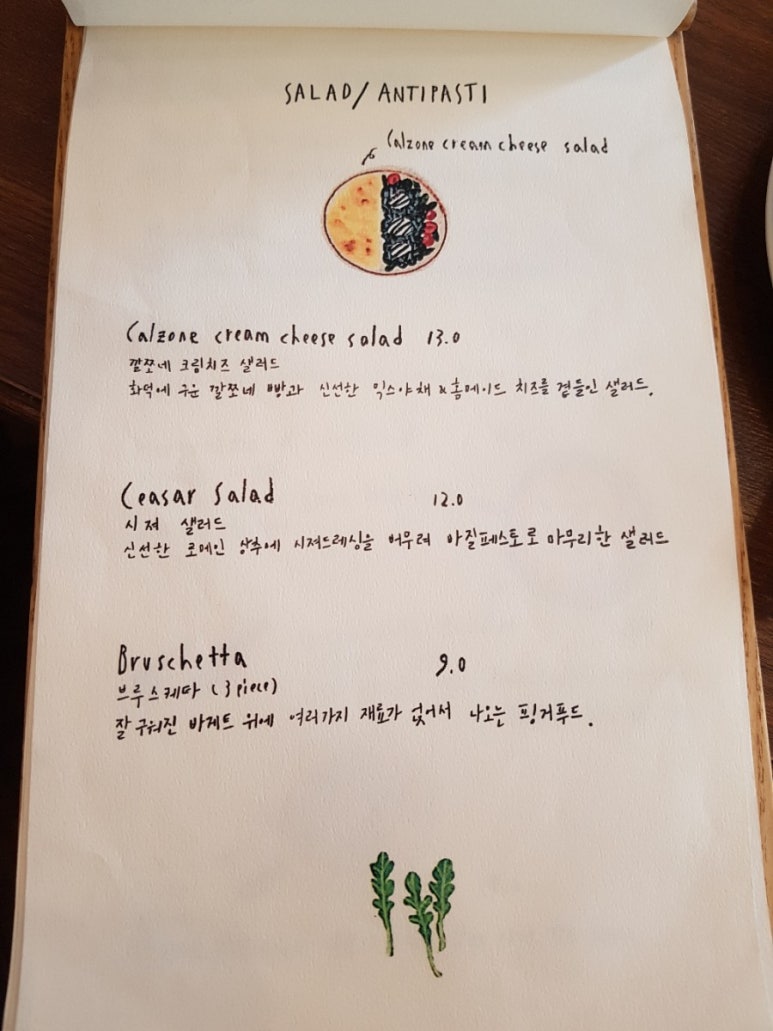 SALAD/ANTIPASTI
Calzone cream cheese salad
Calzone cream cheese salad 13.0
깔쪼네 크림치즈 샐러드
화덕에 구운 깔쪼네 빵과 신선한 믹스야채 & 홈메이드 치즈를 곁들인 샐러드.
Ceasar Salad 12.0
시져 샐러드
신선한 로메인 상추에 시져드레싱을 버무려 바질페스토로 마무리한 샐러드
Bruschetta 9.0
브루스케타 (3 piece)
잘 구워진 바게트 위에 여러가지 재료가 얹어서 나오는 핑거푸드.